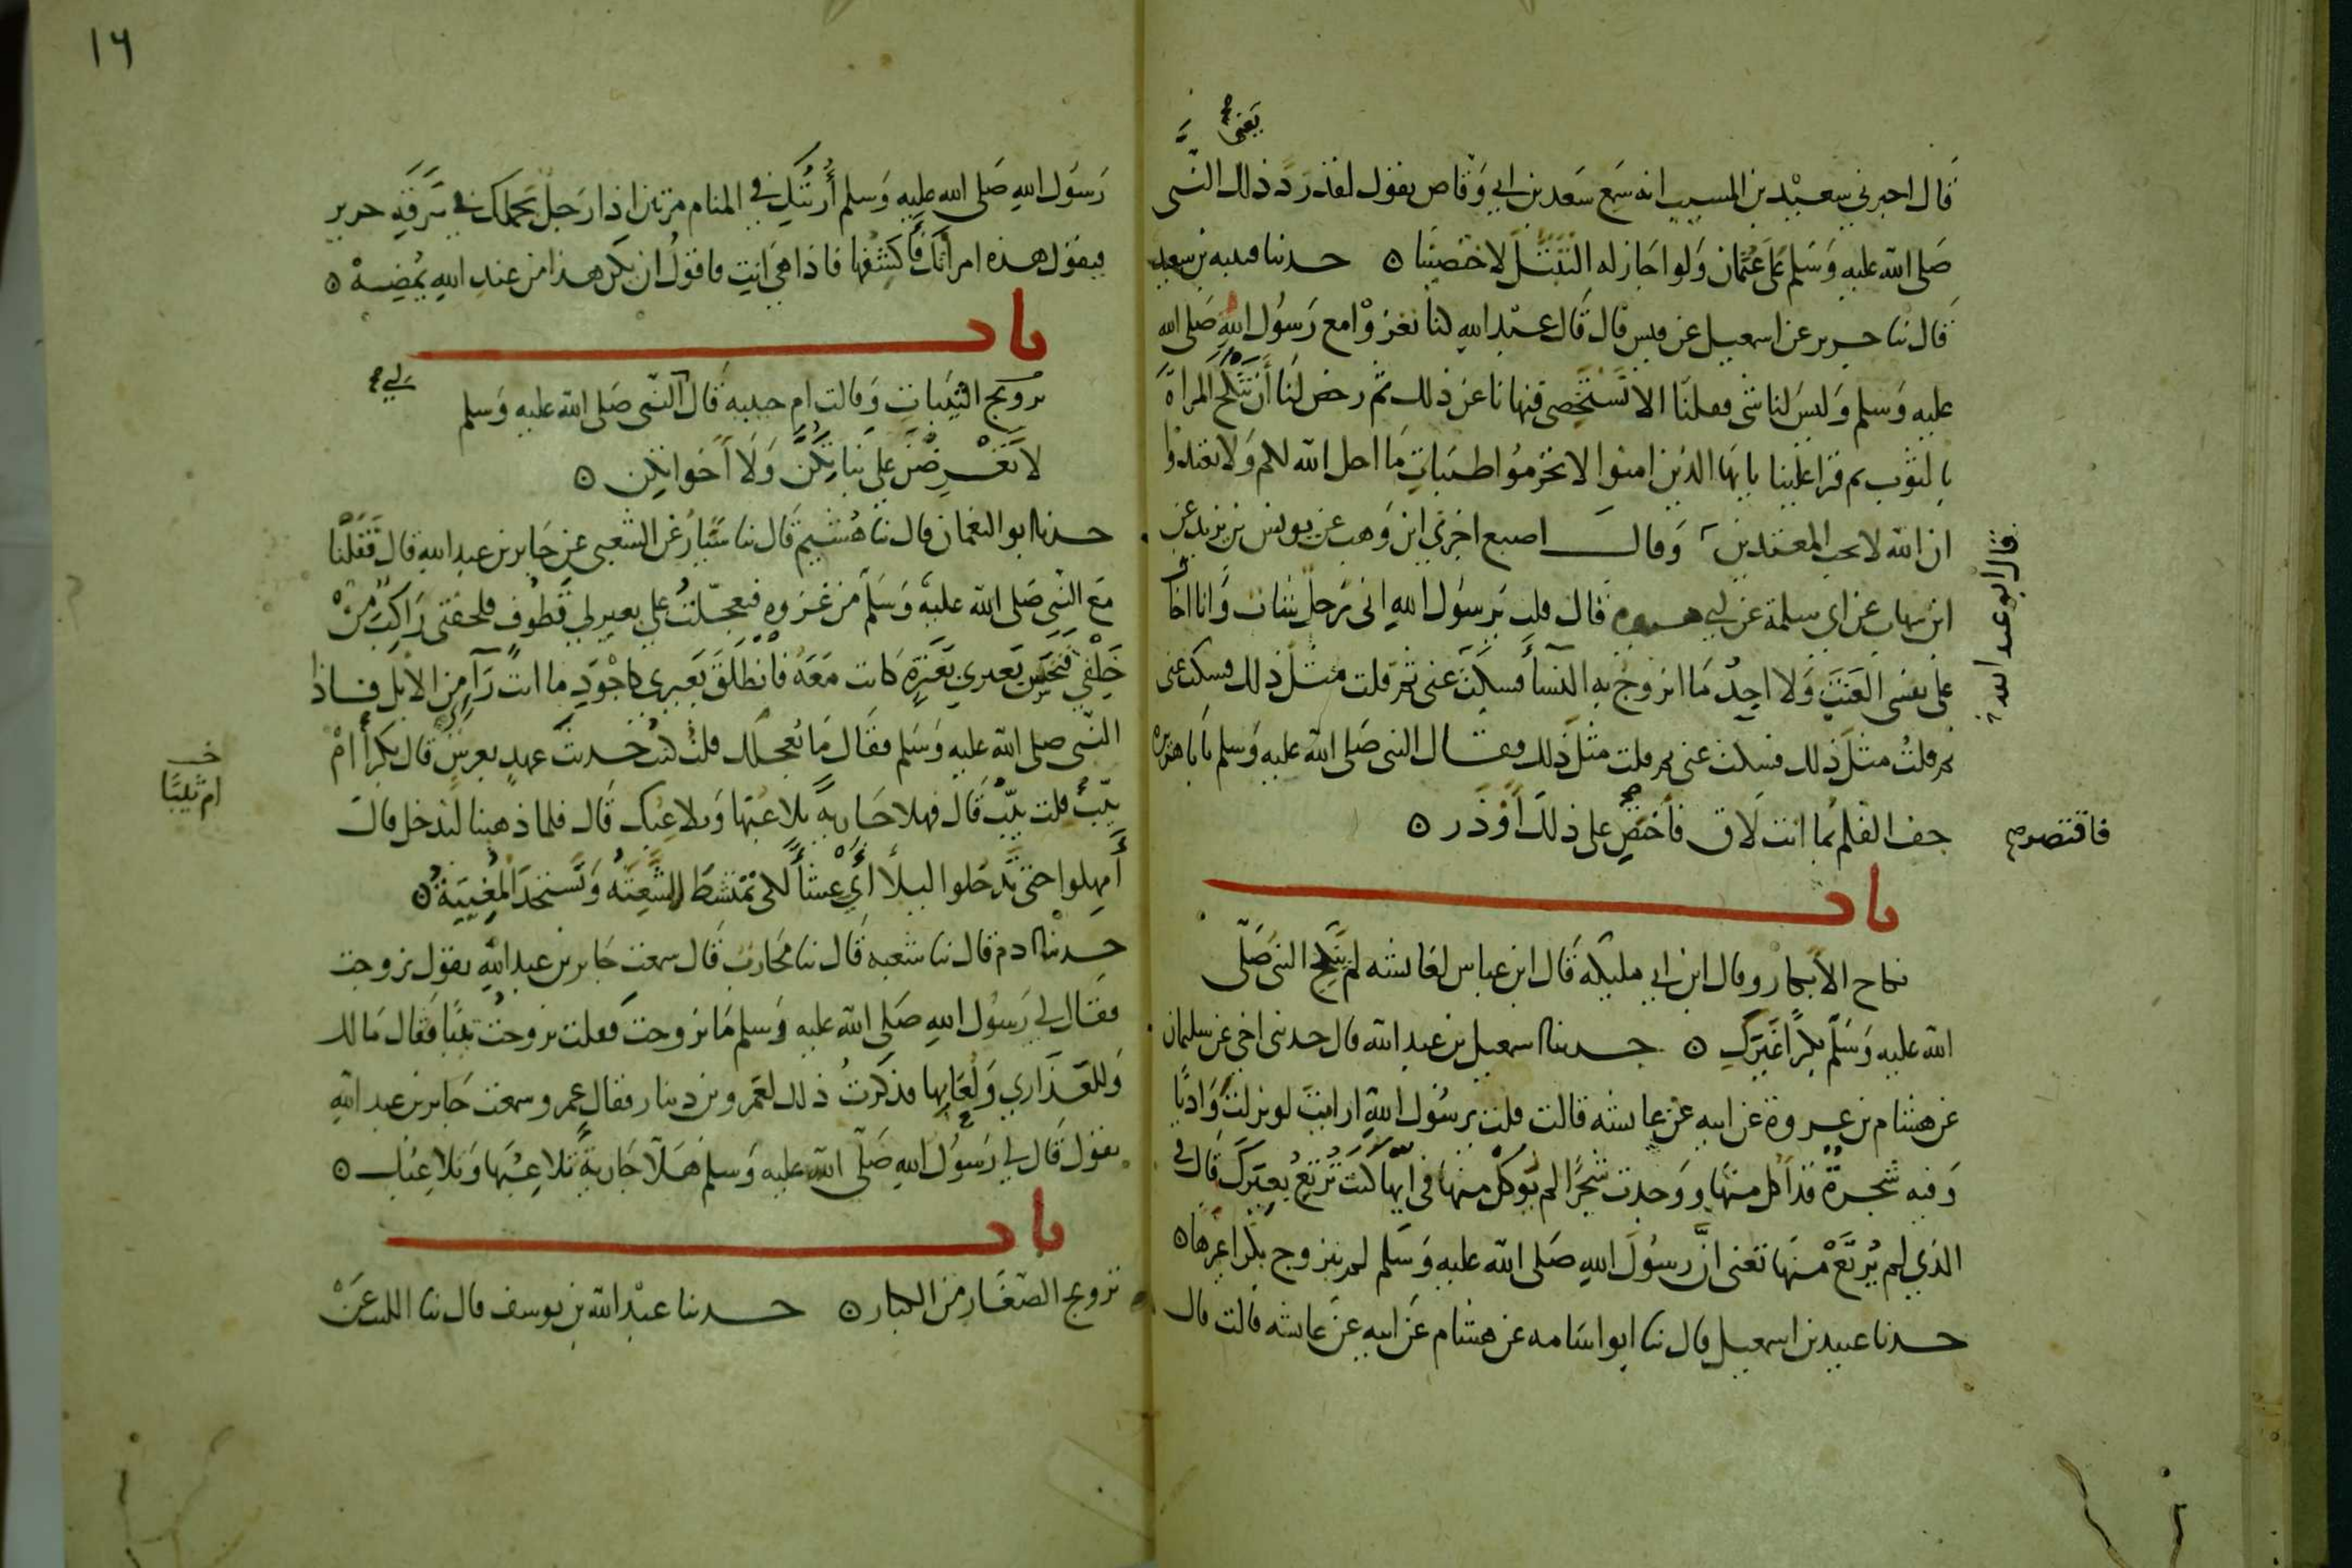 يعني
قال اخبرني سعيد بن المسيب انه سمع سعد بن ابي وقاص يقول لقد رد ذلك النبي
صلى الله عليه وسلم على عثمان ولو اجاز له التبتل لاختصينا ه حدثنا قتيبة بن سعيد
قال ثنا جرير عن اسمعيل عن قيس قال قال عبد الله كنا نغزوا مع رسول الله صلى الله
عليه وسلم وليس لنا شي فقلنا الا نستخصي فنهانا عن ذلك ثم رخص لنا أن ننكح المراة
بالثوب ثم قرا علينا يا يها الذين امنوا لا تحرموا طيبات ما احل الله لكم ولا تعتدوا
ان الله لا يحب المعتدين وقال اصبغ اخبرني ابن وهب عن يونس بن يزيد عن
ابن شهاب عن ابي سلمة عن ابي هريرة قال قلت يرسول الله اني رجل شاب وانا اخاف
على نفسي العنت ولا اجد ما اتزوج به النسأ فسكت عني ثم قلت مثل ذلك فسكت عني
ثم قلت مثل ذلك فسكت عني ثم قلت مثل ذلك فقال النبي صلى الله عليه وسلم يابا هريرة
جف القلم بما انت لاق فأختص على ذلك أو ذر ه
قال ابو عبد الله
فاقتصر
باب
نكاح الابكار وقال ابن ابي مليكه قال ابن عباس لعايشه لم ينكح النبي صلى
الله عليه وسلم بكرا غيرك ه حدثنا اسمعيل بن عبد الله قال حدثني اخي عن سليمان
عن هشام بن عروة عن ابيه عن عايشه قالت قلت يرسول الله ارايت لو نزلت واديا
وفيه شجرة قد أكل منها ووجدت شجرا لم يوكل منها في ايها كنت ترتع بعيرك قال في
الذي لم يرتع منها تعني ان رسول الله صلى الله عليه وسلم لم يتزوج بكرا غيرها ه
حدثنا عبيد بن اسمعيل قال ثنا ابو اسامه عن هشام عن ابيه عن عايشه قالت قال
١٦
رسول الله صلى الله عليه وسلم أريتك في المنام مرتين اذا رجل يحملك في سرقة حرير
فيقول هذه امرأتك فأكشفها فاذا هي انت فاقول ان يكن هذا من عند الله يمضه ه
باب
تزويج الثيبات وقالت ام حبيبه قال النبي صلى الله عليه وسلم
لي
لا تعرضن علي بناتكن ولا أخواتكن ه
حدثنا ابو النعمان قال ثنا هشيم قال ثنا سيار عن الشعبي عن جابر بن عبد الله قال قفلنا
مع النبي صلى الله عليه وسلم من غزوة فتعجلت على بعير لي قطوف فلحقني راكب من
خلفي فنخس بعيري بعنزة كانت معه فانطلق بعيري كاجود ما انت رآء من الابل فاذا
النبي صلى الله عليه وسلم فقال ما يعجلك قلت كنت حديث عهد بعرس قال بكرا أم
ثيب قلت ثيب قال فهلا جارية تلاعبها وتلاعبك قال فلما ذهبنا لندخل قال
أمهلوا حتى تدخلوا ليلا أي عشأ لكي تمتشط الشعثه وتستحد المغيبة ه
ام ثيبا
حدثنا ادم قال ثنا شعبه قال ثنا محارب قال سمعت جابر بن عبد الله يقول تزوجت
فقال لي رسول الله صلى الله عليه وسلم ما تزوجت فقلت تزوجت ثيبا فقال مالك
وللعذاري ولعابها فذكرت ذلك لعمرو بن دينار فقال عمرو سمعت جابر بن عبد الله
يقول قال لي رسول الله صلى الله عليه وسلم هلا جارية تلاعبها وتلاعبك ه
باب
تزويج الصغار من الكبار ه حدثنا عبد الله بن يوسف قال ثنا الليث عن